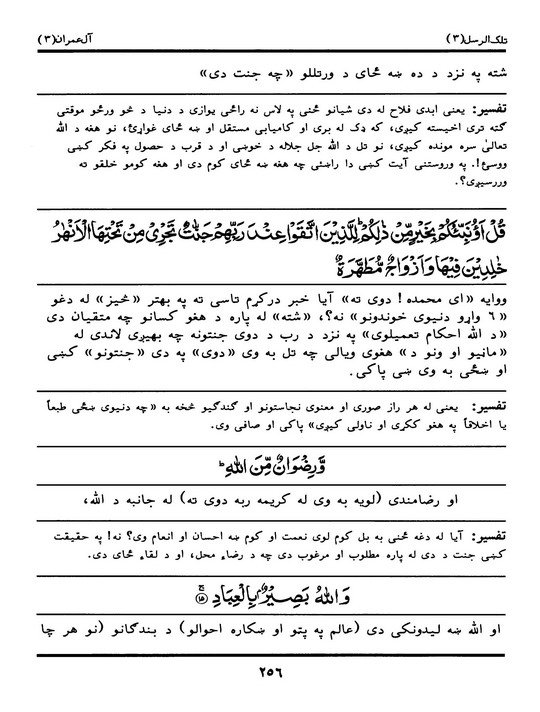 تلك الرسل(٣) آل عمران(٣)
شته په نزد د ده ښه ځای د ورتللو «چه جنت دی»
تفسیر: یعنی ابدی فلاح له دی شیانو ځنی په لاس نه راځی یوازی د دنیا د څو ورځو موقتی
گټه تری اخیسته کیږی، که ډک له بری او کامیابی مستقل او ښه ځای غواړئ، نو هغه د الله
تعالیٰ سره مونده کیږی، نو تل د الله جل جلاله د خوښی او د قرب د حصول په فکر کښی
ووسئ!. په وروستنی آیت کښی دا راښئی چه هغه ښه ځای کوم دی او هغه کومو خلقو ته
وررسیږی؟.
قُلْ اَؤُنَبِّئُكُمْ بِخَيْرٍ مِّنْ ذٰلِكُمْ ؕ لِلَّذِيْنَ اتَّقَوْا عِنْدَ رَبِّهِمْ جَنّٰتٌ تَجْرِيْ مِنْ تَحْتِهَا الْاَنْهٰرُ
خٰلِدِيْنَ فِيْهَا وَاَزْوَاجٌ مُّطَهَّرَةٌ
ووایه «ای محمده! دوی ته» آیا خبر درکړم تاسی ته په بهتر «څیز» له دغو
«٦ واړو دنیوی خوندونو» نه؟، «شته» له پاره د هغو کسانو چه متقیان دی
«د الله احکام تعمیلوی» په نزد د رب د دوی جنتونه چه بهیږی لاندی له
«ماڼیو او ونو د» هغوی ویالی چه تل به وی «دوی» په دی «جنتونو» کښی
او ښځی به وی ښی پاکی.
تفسیر: یعنی له هر راز صوری او معنوی نجاستونو او گندگیو څخه به «چه دنیوی ښځی طبعاً
یا اخلاقاً په هغو ککړی او ناولی کیږی» پاکی او صافی وی.
وَّرِضْوَانٌ مِّنَ اللهِ ؕ
او رضامندی (لویه به وی له کریمه ربه دوی ته) له جانبه د الله،
تفسیر: آیا له دغه ځنی به بل کوم لوی نعمت او کوم ښه احسان او انعام وی؟ نه! په حقیقت
کښی جنت د دی له پاره مطلوب او مرغوب دی چه د رضاء محل، او د لقاء ځای دی.
وَاللهُ بَصِيْرٌۢ بِالْعِبَادِ ۝١٥
او الله ښه لیدونکی دی (عالم په پټو او ښکاره احوالو) د بندگانو (نو هر چا
٢٥٦